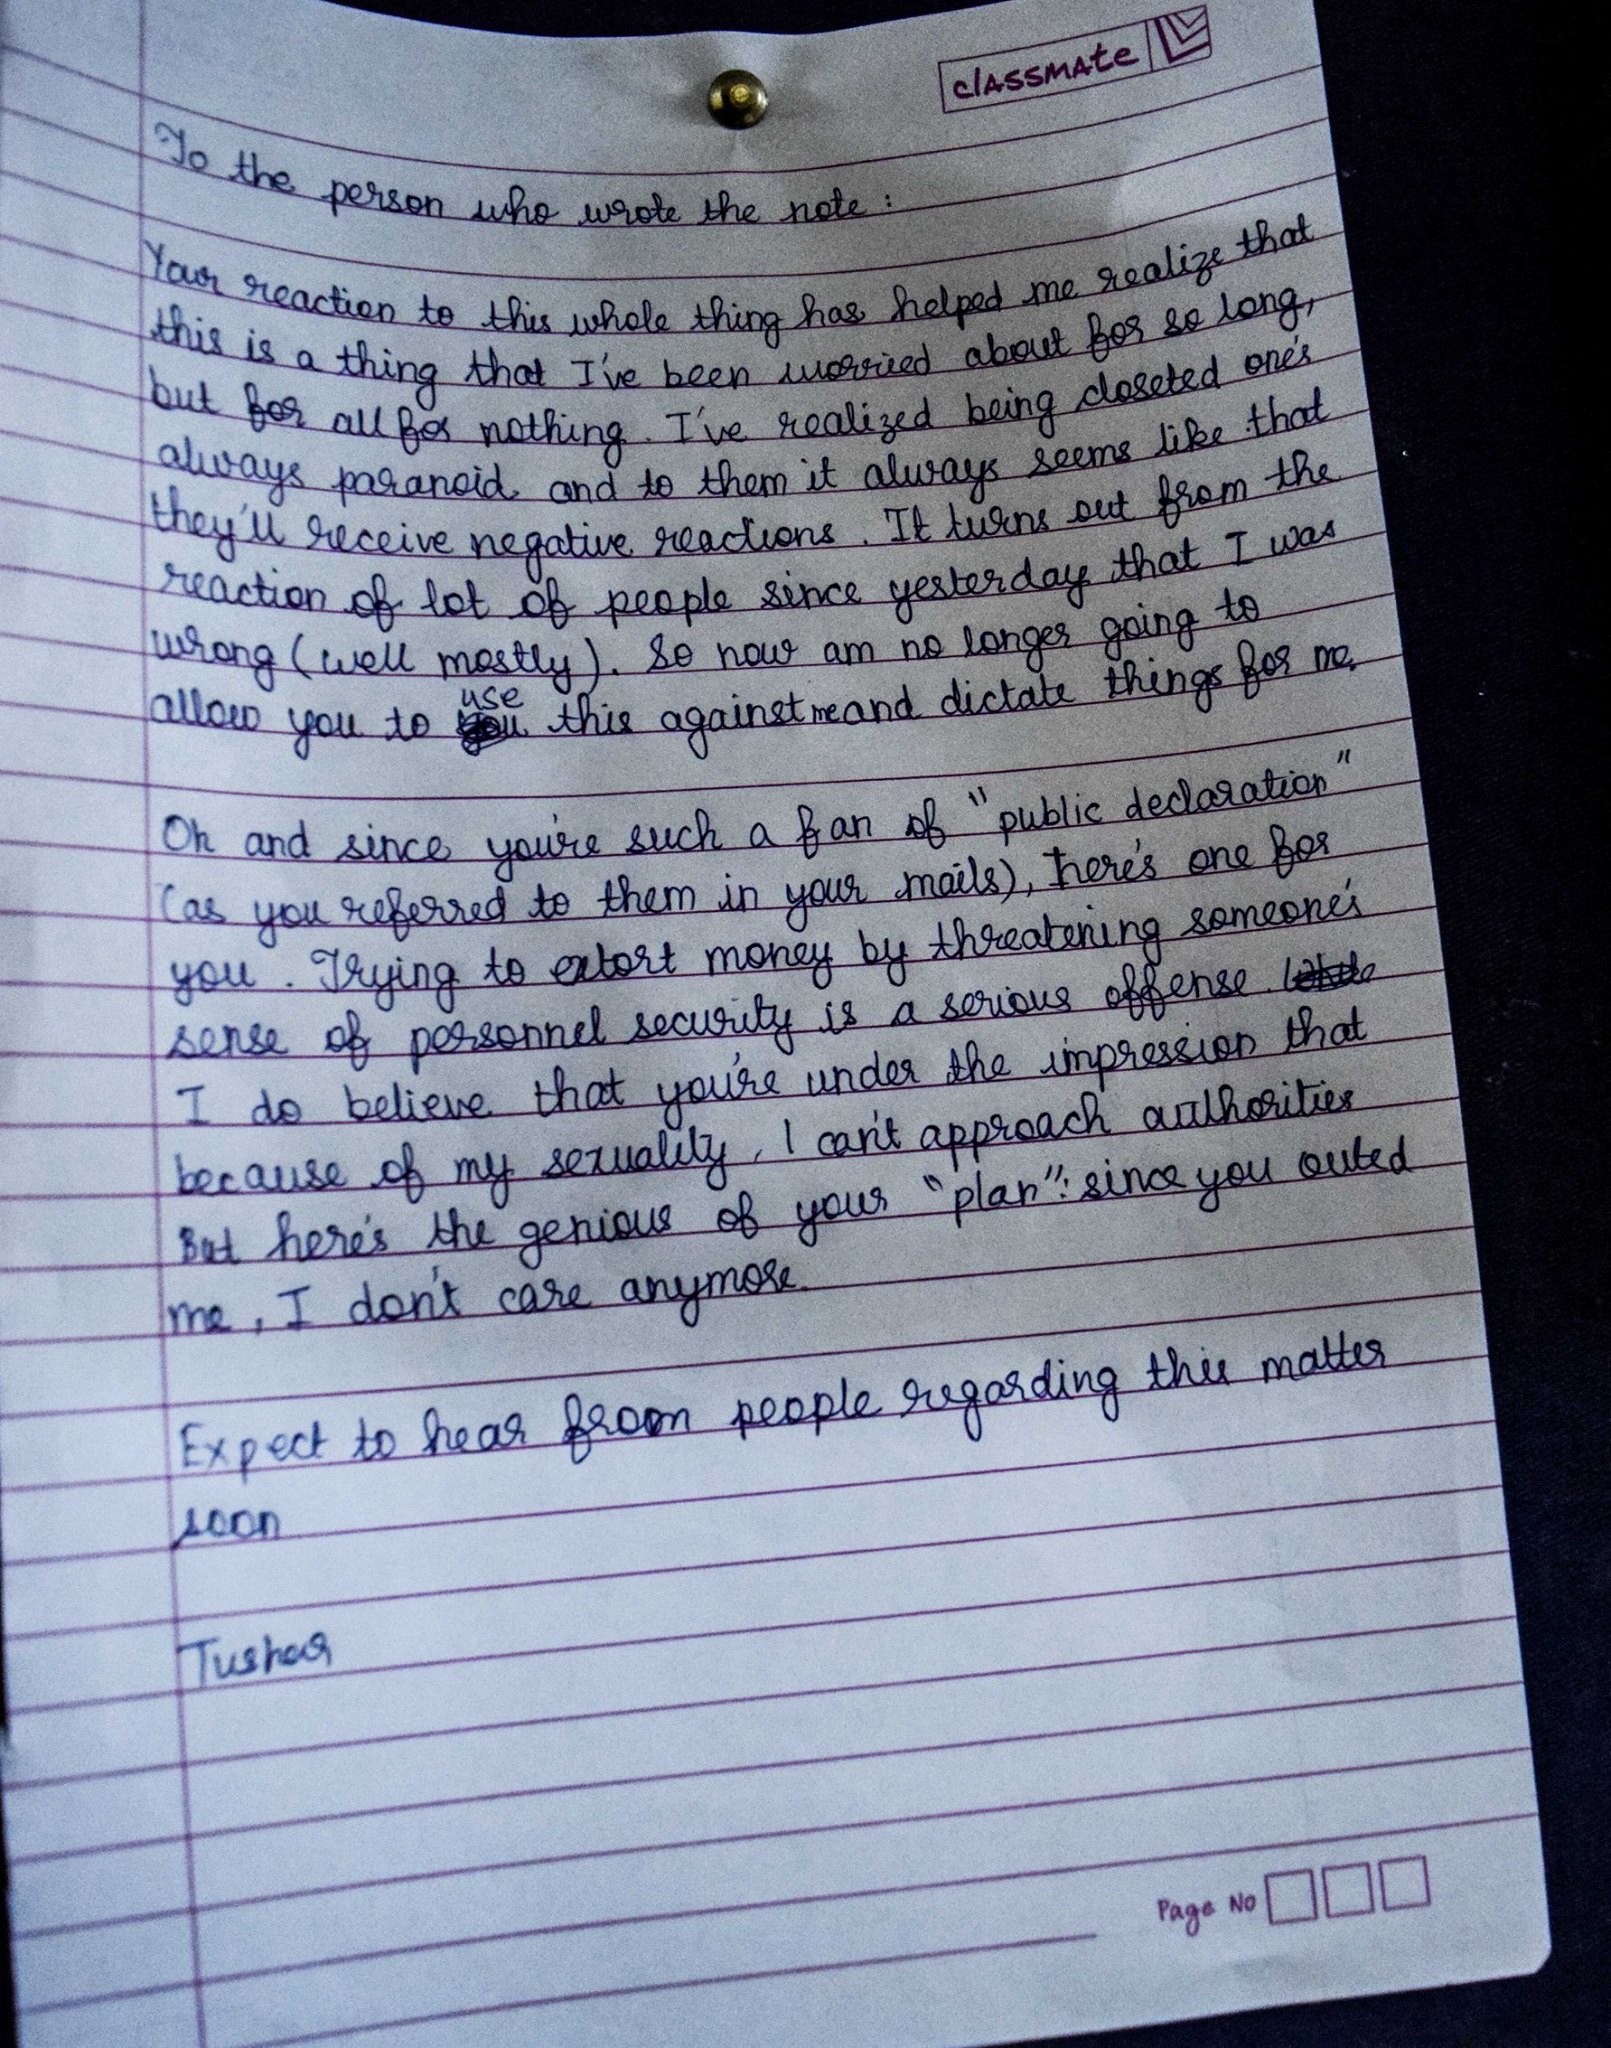 classmate
To the person who wrote the note:
Your reaction to this whole thing has helped me realize that
this is a thing that I've been worried about for so long,
but for all for nothing. I've realized being closeted one's
always paranoid and to them it always seems like that
they'll receive negative reactions. It turns out from the
reaction of lot of people since yesterday that I was
wrong (well mostly). So now am no longer going to
allow you to use this against me and dictate things for me.
Oh and since you're such a fan of "public declaration"
(as you referred to them in your mails), here's one for
you. Trying to extort money by threatening someone's
sense of personnel security is a serious offense.
I do believe that you're under the impression that
because of my sexuality, I can't approach authorities
But here's the genious of your "plan": since you outed
me, I don't care anymore.
Expect to hear from people regarding this matter
soon
Tushar
Page No